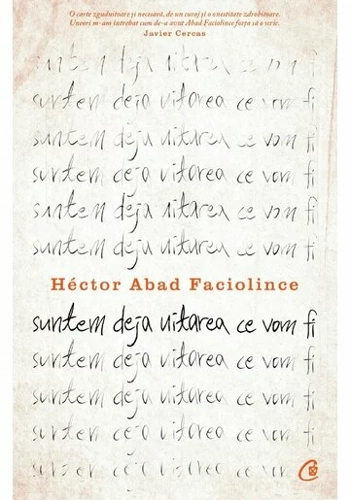 O carte zguduitoare și necesară, de un curaj și o onestitate zdrobitoare.
Uneori m-am întrebat cum de-a avut Abad Faciolince forța să o scrie.
Javier Cercas
suntem deja uitarea ce vom fi
suntem deja uitarea ce vom fi
suntem deja uitarea ce vom fi
suntem deja uitarea ce vom fi
suntem deja uitarea ce vom fi
Héctor Abad Faciolince
suntem deja uitarea ce vom fi
suntem deja uitarea ce vom fi
suntem deja uitarea ce vom fi
suntem deja uitarea ce vom fi
suntem deja uitarea ce vom fi